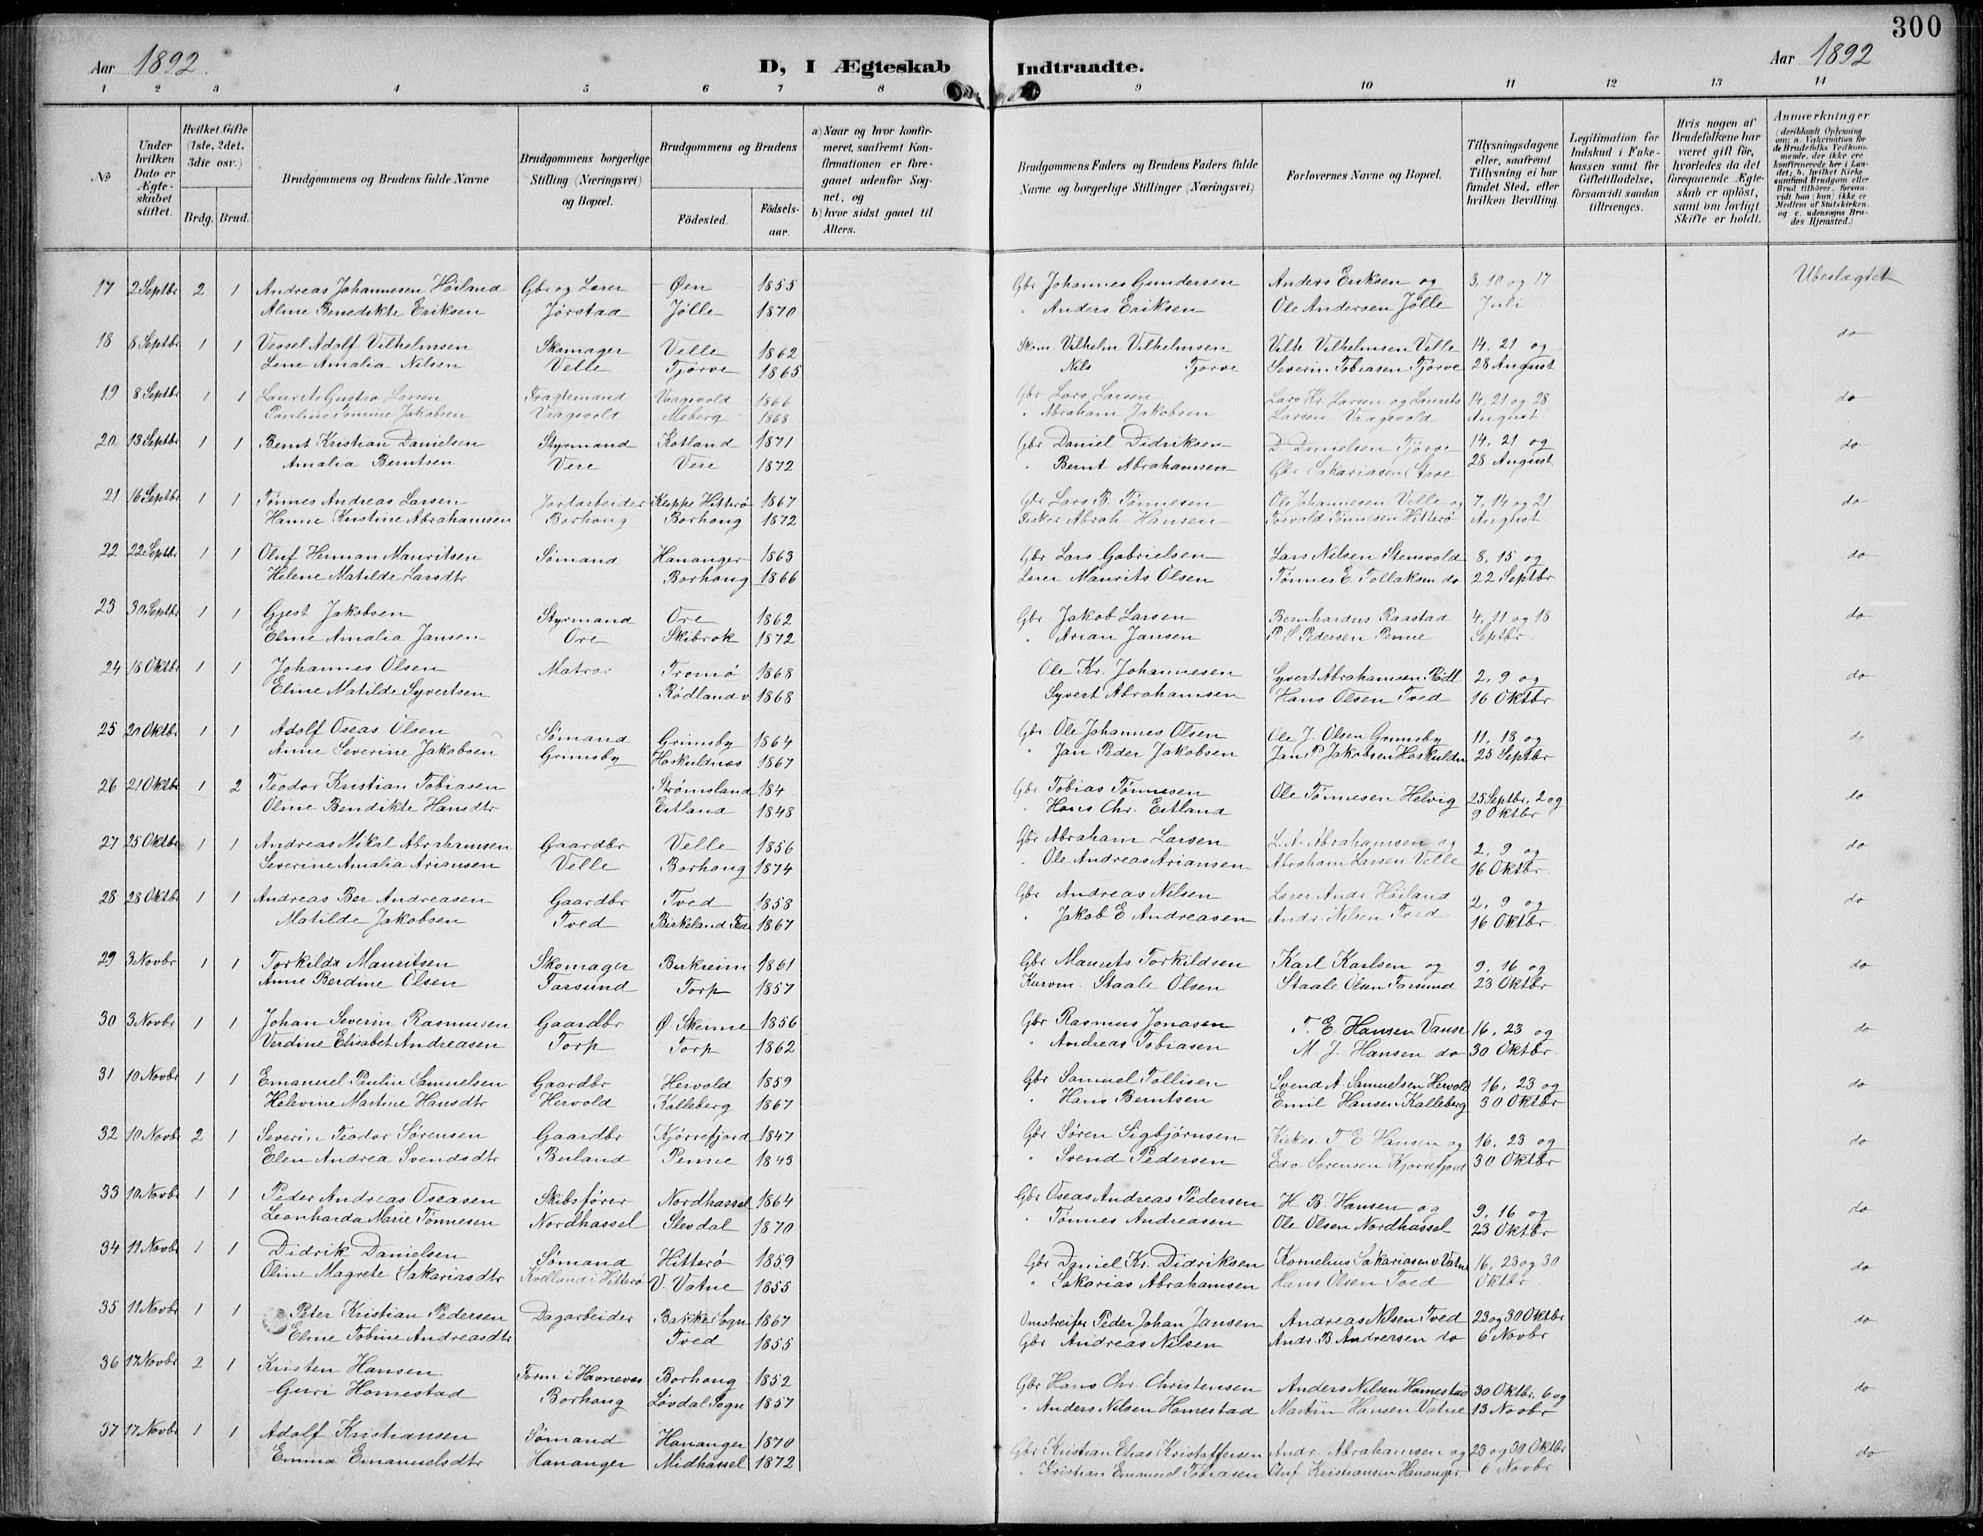 300
Aar 1892.
D, I Ægteskab
Indtraadte.
Aar 1892
1 2 3 4 5 6 7 8 9 10 11 12 13 14
No
Under hvilken Dato er Ægteskabet stiftet.
Hvilket Gifte (1ste, 2det. 3die osv.)
Brdg. Brud.
Brudgommens og Brudens fulde Navne
Brudgommens borgerlige Stilling (Næringsvei) og Bopæl.
Brudgommens og Brudens
Fødested.
Fødselsaar.
a) Naar og hvor konfirmeret, saafremt Konfirmationen er foregaaet udenfor Sognet, og
b) hvor sidst gaaet til Alters.
Brudgommens Faders og Brudens Faders fulde Navne og borgerlige Stillinger (Næringsvei)
Forlovernes Navne og Bopæl.
Tillysningsdagene eller, saafremt Tillysning ei har fundet Sted, efter hvilken Bevilling
Legitimation for Indskud i Enkekassen samt for Giftetilladelse, forsaavidt saadan tiltrænges.
Hvis nogen af Brudefolkene har været gift før, hvorledes da det foregaaende Ægteskab er opløst, samt om lovligt Skifte er holdt.
Anmærkninger
17 2 Septbr 2 1 Andreas Johannesen Høiland Gbr og Lærer Øen 1855 Gbr Johannes Gundersen Anders Eriksen og 3, 10 og 17 Ubeslægtet
Aline Benedikte Eriksen Jørstad Jølle 1870 " Anders Eriksen Ole Andersen Jølle Juli
18 8 Septbr 1 1 Vessel Adolf Vilhelmsen Skomager Velle 1862 Skom. Vilhelm Vilhelmsen Vilh Vilhelmsen Velle 14. 21 og do
Lene Amalia Nilsen Velle Tjørve 1865 Nils Tjørve Severin Tobiasen Tjørve 28 August
19 8 Septbr 1 1 Laurits Gustav Larsen Fragtemand Vaagsvold 1866 Gbr Lars Larsen Lars Kr. Larsen og Laurits 14, 21 og 28 do
Pauline Tomine Jakobsen Vaagsvold Moberg 1868 " Abraham Jakobsen Larsen Vaagsvold August
20 13 Septbr 1 1 Bernt Kristian Danielsen Styrmand Kotland 1871 Gbr Daniel Didriksen D. Danielsen Tjørve 14. 21 og do
Amalia Berntsen Vere Vere 1872 " Bernt Abrahamsen Gbr Sakariasen Stave 28 August
21 16 Septbr 1 1 Tønnes Andreas Larsen Jordarbeider Kloppe Hitterø 1867 Gbr Lars B. Tønnesen Ole Johannesen Velle og 7, 14 og 21 do
Hanne Kristine Abrahamsen Borhoug Borhoug 1872 Fisker Abrah Hansen Torvald Tønnesen Hitterø August
22 22 Septbr 1 1 Oluf Herman Mauritsen Sømand Hananger 1863 Gbr Lars Gabrielsen Lars Nilsen Stensvold 8, 15 og do
Helene Matilde Larsdtr Borhoug 1866 Lærer Maurits Olsen Tønnes E. Tollaksen do 22 Septbr
23 30 Septbr 1 1 Gjest Jakobsen Styrmand Ore 1862 Gbr Jakob Larsen Bernhardus Raastad 4, 11 og 18 do
Eline Amalia Jansen Ore Skibrok 1872 " Arian Jansen P. S. Pedersen Penne Septbr
24 18 Oktbr 1 1 Johannes Olsen Matros Tromø 1868 Ole Kr. Johannesen Syvert Abrahamsen Rødl 2, 9 og do
Eline Matilde Syvertsen Rødland v 1868 Syvert Abrahamsen Hans Olsen Tved 16 Oktbr
25 20 Oktbr 1 1 Adolf Oseas Olsen Sømand Grimsby 1864 Gbr Ole Johannes Olsen Ole J. Olsen Grimsby 11, 18 og do
Anne Severine Jakobsen Grimsby Høskuldnes 1867 " Jan Peder Jakobsen Jan P Jakobsen Høskuldn 25 Septbr
26 21 Oktbr 1 2 Teodor Kristian Tobiasen Strømsland 184 Gbr Tobias Tønnesen Ole Tønnesen Helvig 25 Septbr, 2 og do
Oline Bendikte Hansdtr Estland 1848 " Hans Chr. Estland 9 Oktbr
27 25 Oktbr 1 1 Andreas Mikal Abrahamsen Gaardbr Velle 1856 Gbr Abraham Larsen L. A. Abrahamsen og 2, 9 og do
Severine Amalia Ariansen Velle Borhoug 1874 " Ole Andreas Ariansen Abraham Larsen Velle 16 Oktbr
28 28 Oktbr 1 1 Andreas Ber Andreasen Gaardbr Tved 1858 Gbr Andreas Nilsen Lærer Andr Høiland 2, 9 og do
Matilde Jakobsen Tved Birkeland Feda 1867 " Jakob E Andreasen Andr. Nilsen Tved 16 Oktbr
29 3 Novbr 1 1 Torkilda Mauritsen Skomager Birkreim 1861 Gbr Maurits Torkildsen Karl Karlsen og 9, 16 og do
Anne Berdine Olsen Farsund Torp 1857 Kurvm. Staale Olsen Staale Olsen Farsund 23 Oktbr
30 3 Novbr 1 1 Johan Severin Rasmussen Gaardbr Ø. Skeime 1856 Gbr Rasmus Jonasen T. E. Hansen Vanse 16, 23 og do
Verdine Elisabet Andreasen Torp Torp 1862 " Andreas Tobiasen M. J. Hansen do 30 Oktbr.
31 10 Novbr 1 1 Emanuel Paulin Samuelsen Gaardbr Hervold 1859 Gbr Samuel Tollisen Svend A. Samuelsen Hervold 16, 23 og do
Helevine Martine Hansdtr Hervold Kalleberg 1867 " Hans Berntsen Emil Hansen Kalleberg 30 Oktbr
32 10 Novbr 2 1 Severin Teodor Sørensen Gaardbr Kjørrefjord 1847 Gbr Søren Sigbjørnsen Kirkes. T E Hansen og 16, 23 og do
Elen Andrea Svendsdtr Buland Penne 1843 " Svend Pedersen Edv. Sørensen Kjørrefjord 30 Oktbr
33 10 Novbr 1 1 Peder Andreas Oseasen Skibsfører Nordhassel 1864 Gbr Oseas Andreas Pedersen H. B. Hansen og 9, 16 og do
Leonharda Marie Tønnesen Nordhassel Slevdal 1870 " Tønnes Andreasen Ole Olsen Nordhassel 23 Oktbr
34 11 Novbr 1 1 Didrik Danielsen Sømand Hitterø 1859 Gbr Daniel Kr. Didriksen Kornelius Sakariasen v. Vatne 16, 23 og 30 do
Oline Magrete Sakariasdtr Kvelland i Hitterø V. Vatne 1855 " Sakarias Abrahamsen Hans Olsen Tved Oktbr
35 11 Novbr 1 1 Peter Kristian Pedersen Dagarbeider Bakke Sogn 1867 Omstreifer Peder Johan Jansen Andreas Nilsen Tved 23 og 30 Oktbr do
Eline Tobine Andreasdtr Tved 1855 Gbr Andreas Nilsen Andr. B Andersen do 6 Novbr
36 17 Novbr 2 1 Kristen Hansen Form i Havnevæs Borhoug 1852 Gbr Hans Chr. Christensen Anders Nilsen Homestad 30 Oktbr. 6 og do
Guri Homestad Borhoug Løvdal Sogn 1857 " Anders Nilsen Homestad Martin Hansen Vatne 13 Novbr
37 17 Novbr 1 1 Adolf Kristiansen Sømand Hananger 1870 Gbr Kristian Elias Kristoffersen Andr. Abrahamsen og 23 og 30 Oktbr do
Emma Emanuelsdtr Hananger Midhassel 1872 " Kristian Emanuel Tobiasen Oluf Kristiansen Hananger 6 Novbr